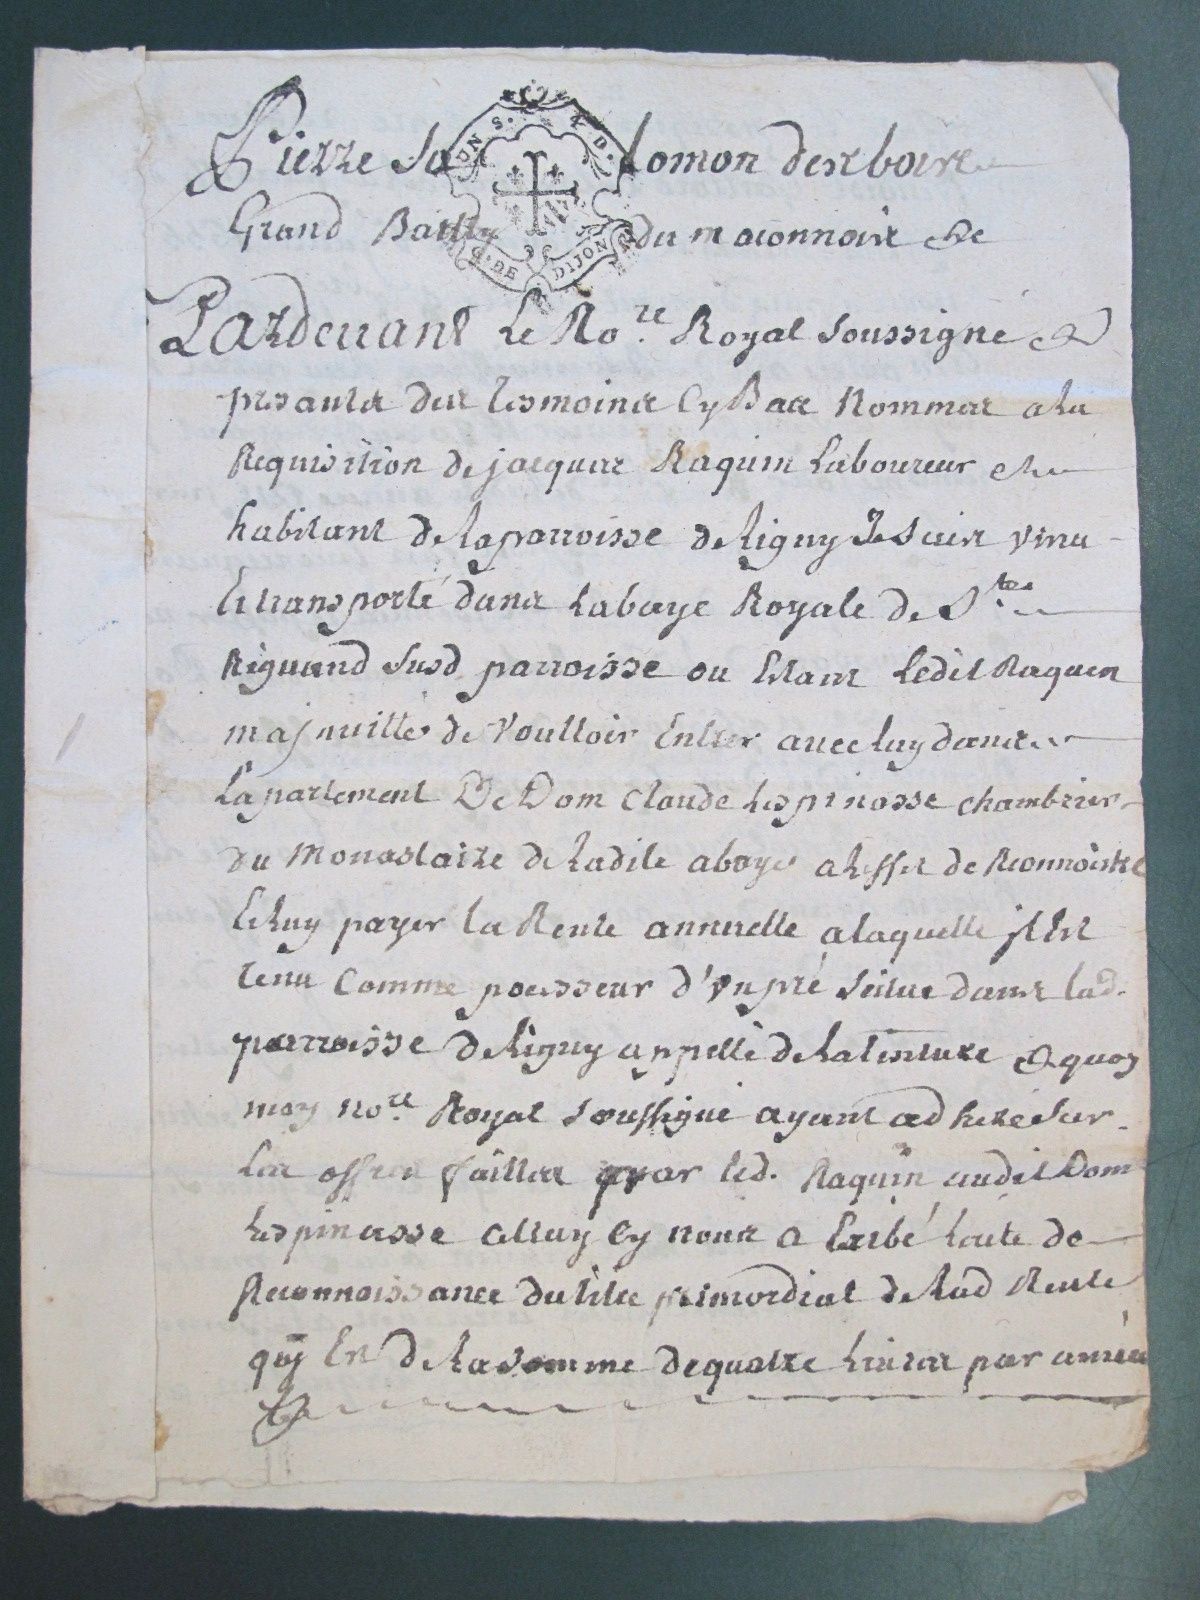 Pierre Salomon desrbois
UN S. 4 D.
G. DE DIJON
Grand Bailly du maconnois &c
Pardevant Le No.re Royal Soussigné &
presantes des tesmoins Cy Bas Nommes ala
Requisition de jacques Raquin Laboureur &
habitant de La parroisse de Ligny Je Suis venu
Et transporté dans Labaye Royale de Ste
Riguand Susd parroisse ou Estant Ledit Raquin
maj nvitté de Voulloir Entrer avec luy dans
Lapartement De Dom Claude Lespinasse Chambrier
du Monastaire de Ladite abaye a Leffet de Reconnoistre
Et Luy payer La Rente annuelle a laquelle jl Est
tenu Comme possseur d'Vn pré Scitué dans lad.
parroisse de Ligny appellé de La & quoy
moy No.re Royal Soussigné ayant adheré Sur
Les offres faittes par led. Raquin audit Dom
Lespinasse Celluy Cy nous a Exibé Lacte de
Reconnoissance du titre primordial de Lad Rente
quy Est de La somme de quatre Livres par année